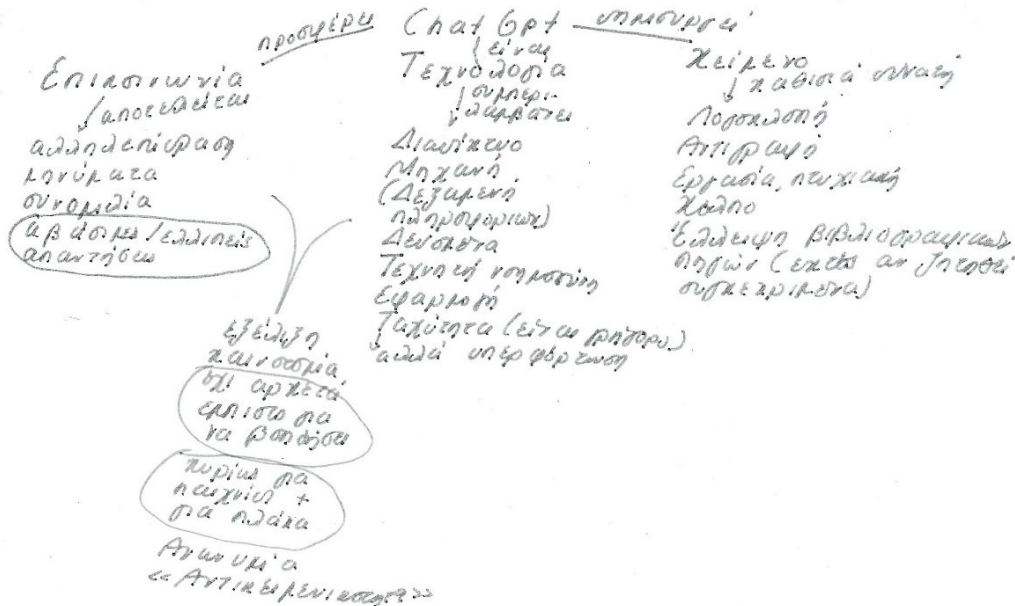 προσφέρει
Chat Gpt
δημιουργεί
Επικοινωνία
αποτελείται
αλληλεπίδραση
μηνύματα
συνομιλία
αβάσιμες/ελλιπείς
απαντήσεις
είναι
Τεχνολογία
συμπερι-
λαμβάνει
Διαδίκτυο
Μηχανή
(Δεξαμενή
πληροφοριών)
Δεδομένα
Τεχνητή νοημοσύνη
Εφαρμογή
Ταχύτητα (είναι γρήγορο)
αλλά υπερφόρτωση
Κείμενο
καθιστά δυνατή
Λογοκλοπή
Αντιγραφή
Εργασία, πτυχιακή
Έλλειψη βιβλιογραφικών
πηγών (εκτός αν ζητηθεί
συγκεκριμένα)
εξέλιξη
καινοτομία
όχι αρκετά
έμπιστο για
να βοηθήσει
κυρίως για
παιχνίδι +
για πλάκα
Ανωνυμία
<<Αντικειμενικότητα>>